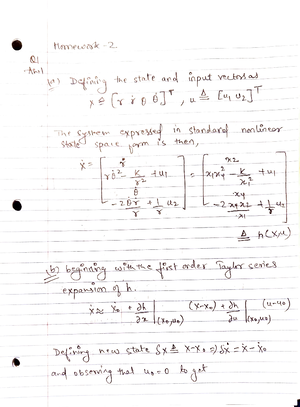 Homework-2
Q1
Ans)
(a) Defining the state and input vectors as
x ≜ [r ṙ θ θ̇]ᵀ , u ≜ [u₁ u₂]ᵀ
The system expressed in standard nonlinear
state space form is then,
ẋ = [ ṙ ; rθ̇² - k/r² + u₁ ; θ̇ ; -2θ̇ṙ/r + 1/r u₂ ] = [ x₂ ; x₁x₄² - k/x₁² + u₁ ; x₄ ; -2x₄x₂/x₁ + 1/r u₂ ]
≜ h(x,u)
(b) beginning with the first order Taylor series
expansion of h.
ẋ ≈ ẋ₀ + ∂h/∂x |(x₀,u₀) (x-x₀) + ∂h/∂u |(x₀,u₀) (u-u₀)
Defining new state δx ≜ x-x₀ ⇒ δẋ = ẋ - ẋ₀
and observing that u₀ = 0 to get